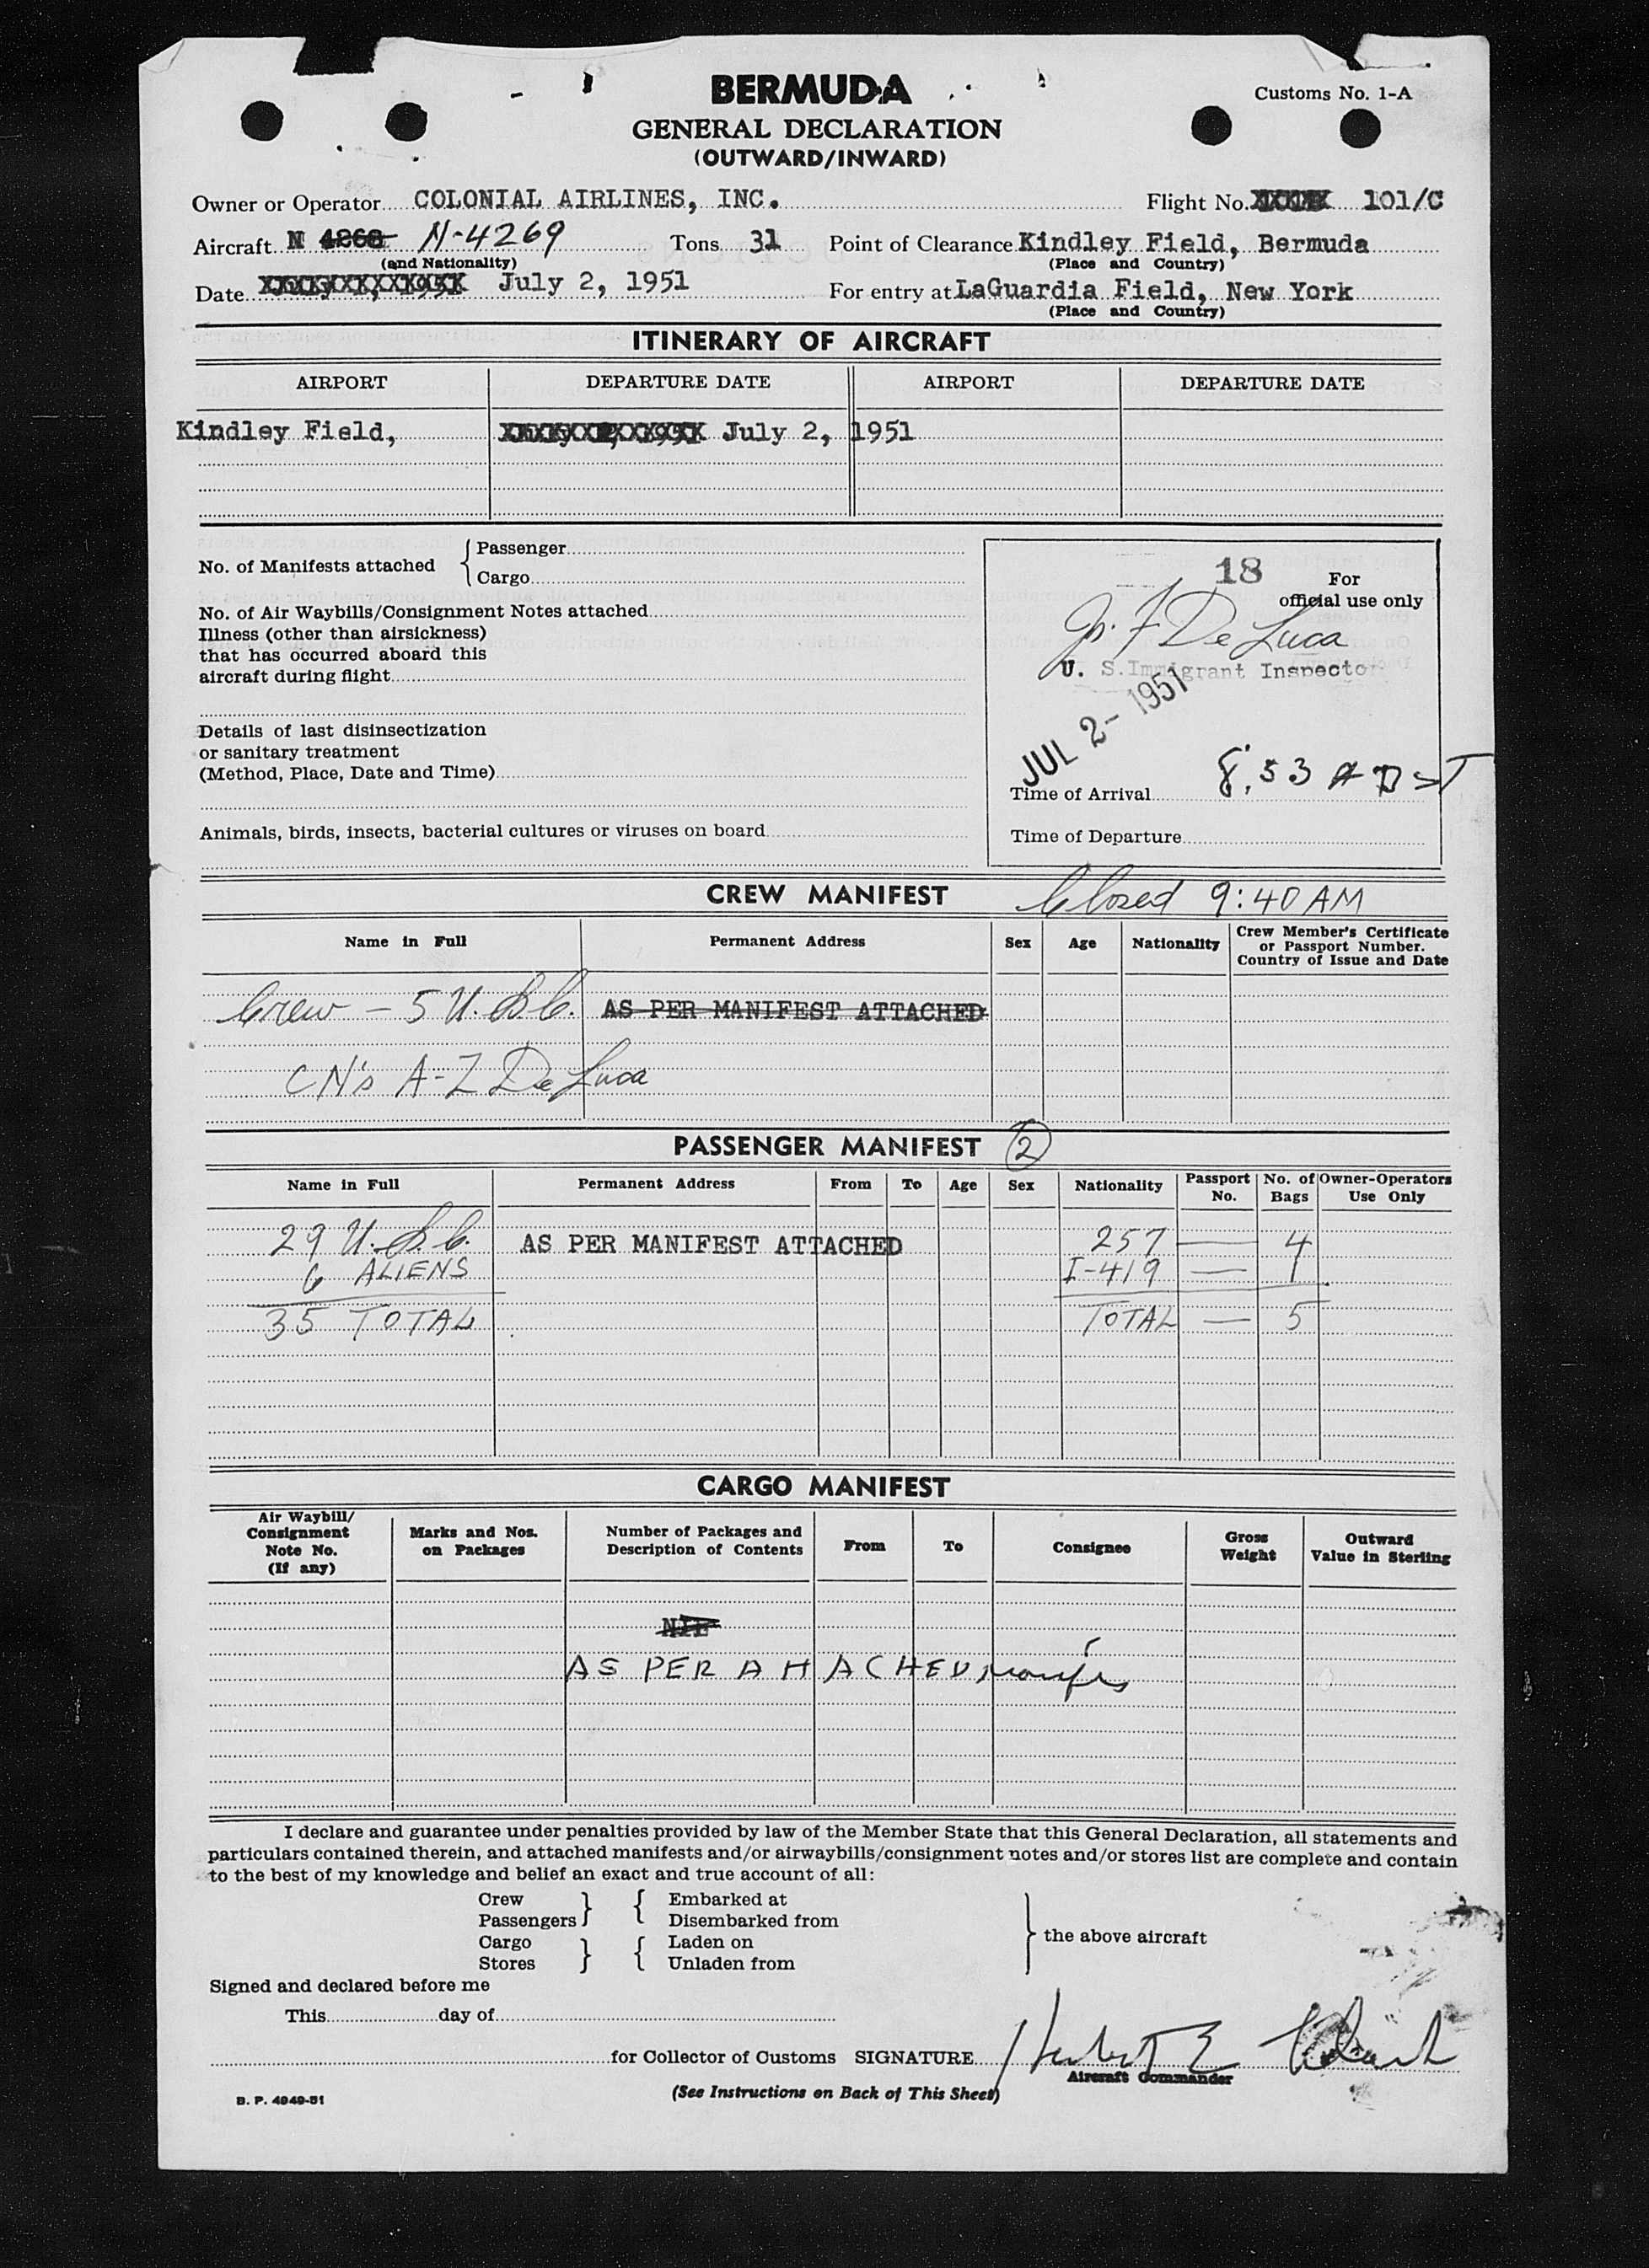 BERMUDA
Customs No. 1-A
GENERAL DECLARATION
(OUTWARD/INWARD)
Owner or Operator COLONIAL AIRLINES, INC. Flight No. 101/C
Aircraft N 4268 N-4269 Tons 31 Point of Clearance Kindley Field, Bermuda
(and Nationality) (Place and Country)
Date July 2, 1951 For entry at LaGuardia Field, New York
(Place and Country)
ITINERARY OF AIRCRAFT
AIRPORT DEPARTURE DATE AIRPORT DEPARTURE DATE
Kindley Field, July 2, 1951
No. of Manifests attached { Passenger
Cargo
No. of Air Waybills/Consignment Notes attached
Illness (other than airsickness)
that has occurred aboard this
aircraft during flight
Details of last disinsectization
or sanitary treatment
(Method, Place, Date and Time)
Animals, birds, insects, bacterial cultures or viruses on board
18 For
official use only
De Luca
U. S. Immigrant Inspector
JUL 2- 1951
8:53 A DST
Time of Arrival
Time of Departure
CREW MANIFEST Closed 9:40 AM
Name in Full Permanent Address Sex Age Nationality Crew Member's Certificate
or Passport Number.
Country of Issue and Date
Crew - 5 U.S.C. AS PER MANIFEST ATTACHED
CN's A-Z De Luca
PASSENGER MANIFEST 2
Name in Full Permanent Address From To Age Sex Nationality Passport No. No. of Bags Owner-Operators Use Only
29 U.S.C. AS PER MANIFEST ATTACHED 257 — 4
6 ALIENS I-419 — 1
35 TOTAL TOTAL — 5
CARGO MANIFEST
Air Waybill/
Consignment
Note No.
(If any)
Marks and Nos.
on Packages
Number of Packages and
Description of Contents
From To Consignee
Gross
Weight
Outward
Value in Sterling
NIL
AS PER ATTACHED
I declare and guarantee under penalties provided by law of the Member State that this General Declaration, all statements and
particulars contained therein, and attached manifests and/or airwaybills/consignment notes and/or stores list are complete and contain
to the best of my knowledge and belief an exact and true account of all:
Crew } { Embarked at
Passengers Disembarked from
Cargo } { Laden on
Stores Unladen from
} the above aircraft
Signed and declared before me
This day of
for Collector of Customs SIGNATURE Herbert E
Aircraft Commander
(See Instructions on Back of This Sheet)
B. P. 4949-51